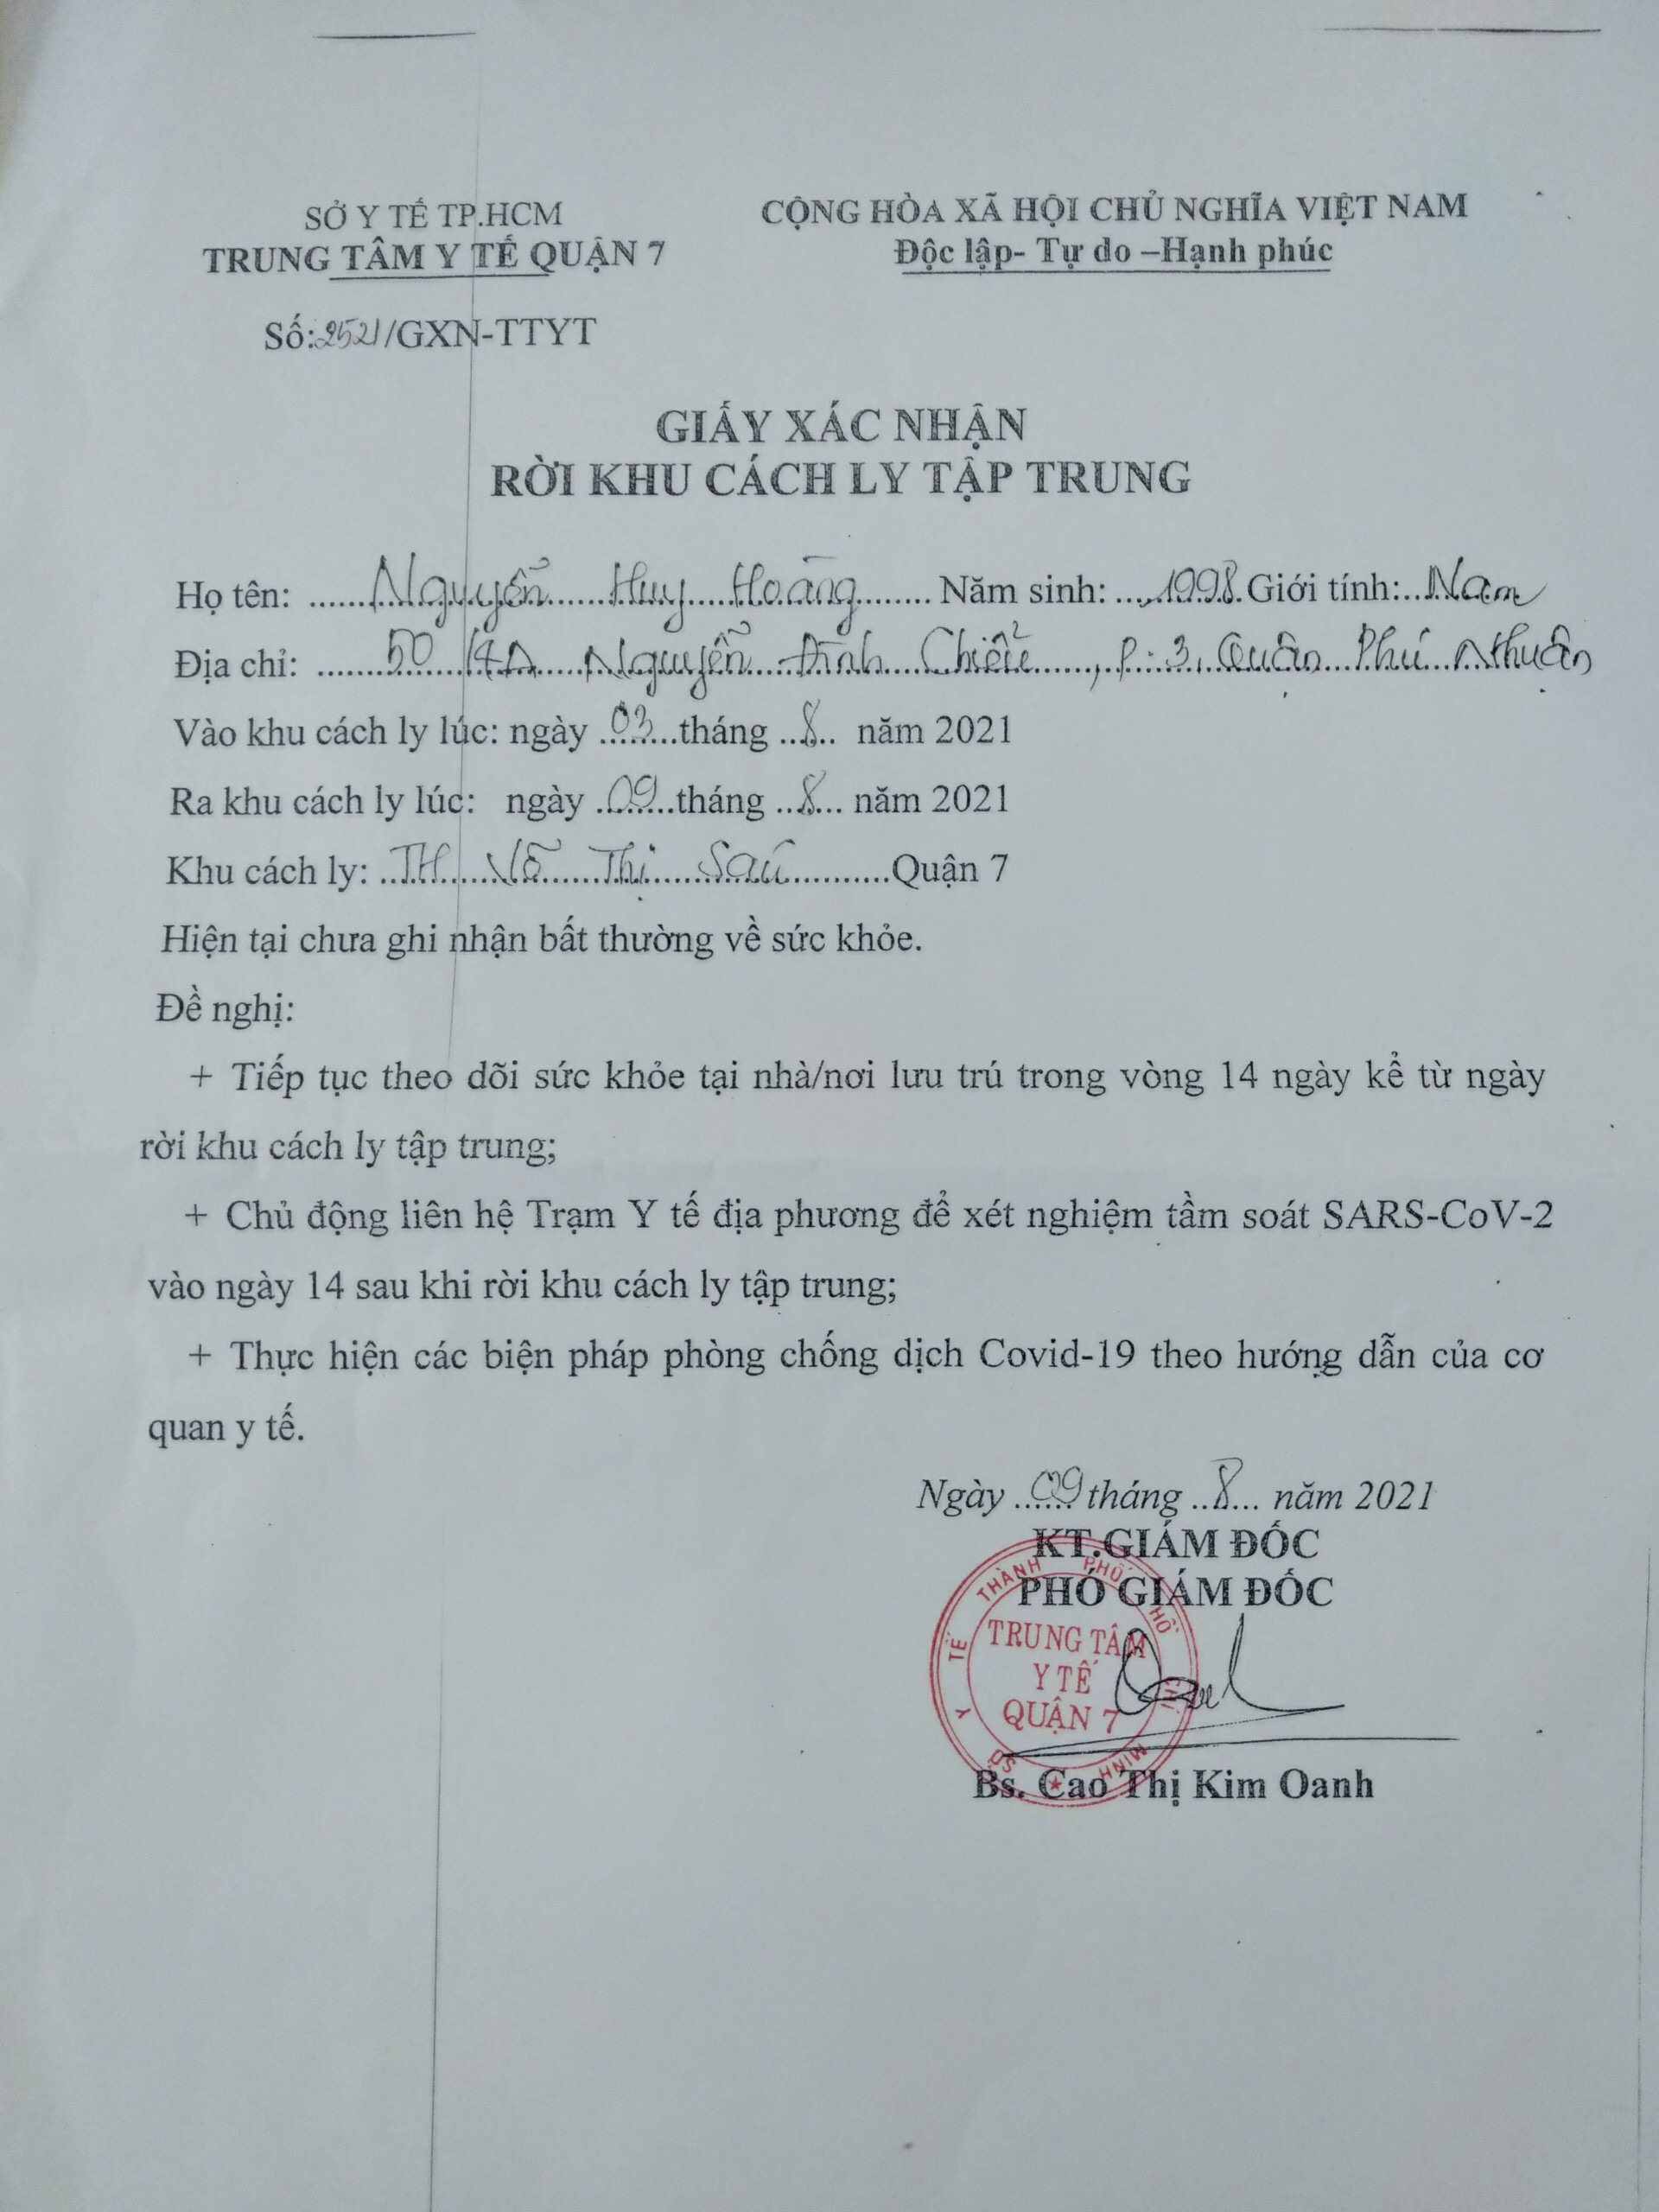 SỞ Y TẾ TP.HCM
TRUNG TÂM Y TẾ QUẬN 7
CỘNG HÒA XÃ HỘI CHỦ NGHĨA VIỆT NAM
Độc lập- Tự do –Hạnh phúc
Số:2521/GXN-TTYT
GIẤY XÁC NHẬN
RỜI KHU CÁCH LY TẬP TRUNG
Họ tên: Nguyễn Huy Hoàng Năm sinh: 1998 Giới tính: Nam
Địa chỉ: 50/4A Nguyễn Đình Chiểu, P. 3, Quận Phú Nhuận
Vào khu cách ly lúc: ngày 03 tháng 8 năm 2021
Ra khu cách ly lúc: ngày 09 tháng 8 năm 2021
Khu cách ly: TH Võ Thị Sáu Quận 7
Hiện tại chưa ghi nhận bất thường về sức khỏe.
Đề nghị:
+ Tiếp tục theo dõi sức khỏe tại nhà/nơi lưu trú trong vòng 14 ngày kể từ ngày
rời khu cách ly tập trung;
+ Chủ động liên hệ Trạm Y tế địa phương để xét nghiệm tầm soát SARS-CoV-2
vào ngày 14 sau khi rời khu cách ly tập trung;
+ Thực hiện các biện pháp phòng chống dịch Covid-19 theo hướng dẫn của cơ
quan y tế.
Ngày 09 tháng 8 năm 2021
KT.GIÁM ĐỐC
PHÓ GIÁM ĐỐC
SỞ Y TẾ THÀNH PHỐ HỒ CHÍ MINH
TRUNG TÂM
Y TẾ
QUẬN 7
Bs. Cao Thị Kim Oanh